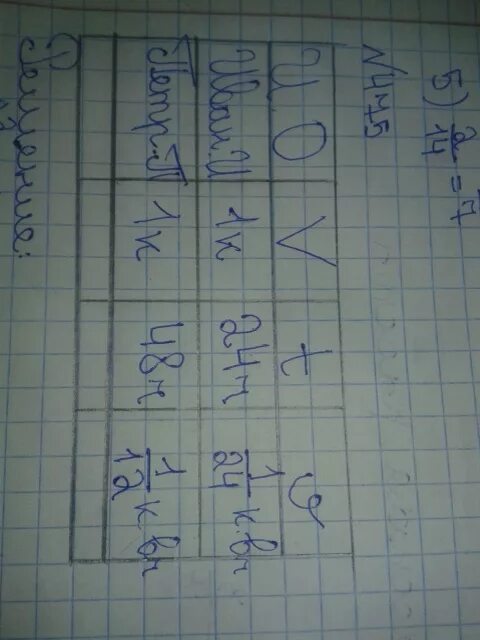 5) 2/14 = 7
№ 415
И.О V t υ
Иван.И 1к 24ч 1/24 к.вч
Петр.П 1к 48ч 1/12 к вч
Решение: